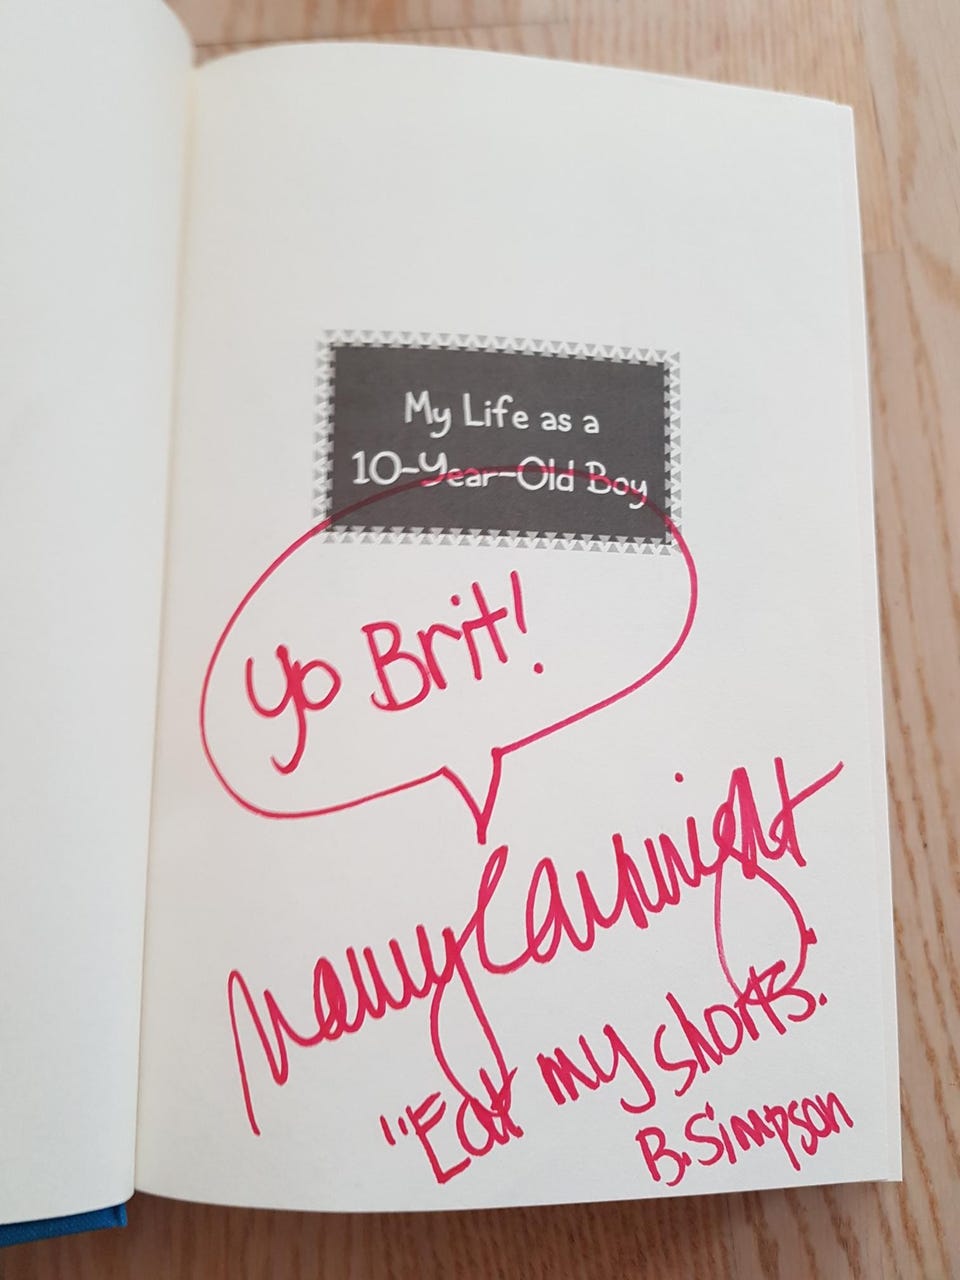 My Life as a
10-Year-Old Boy
Yo Brit!
Nancy Cartwright
"Eat my shorts.
B. Simpson